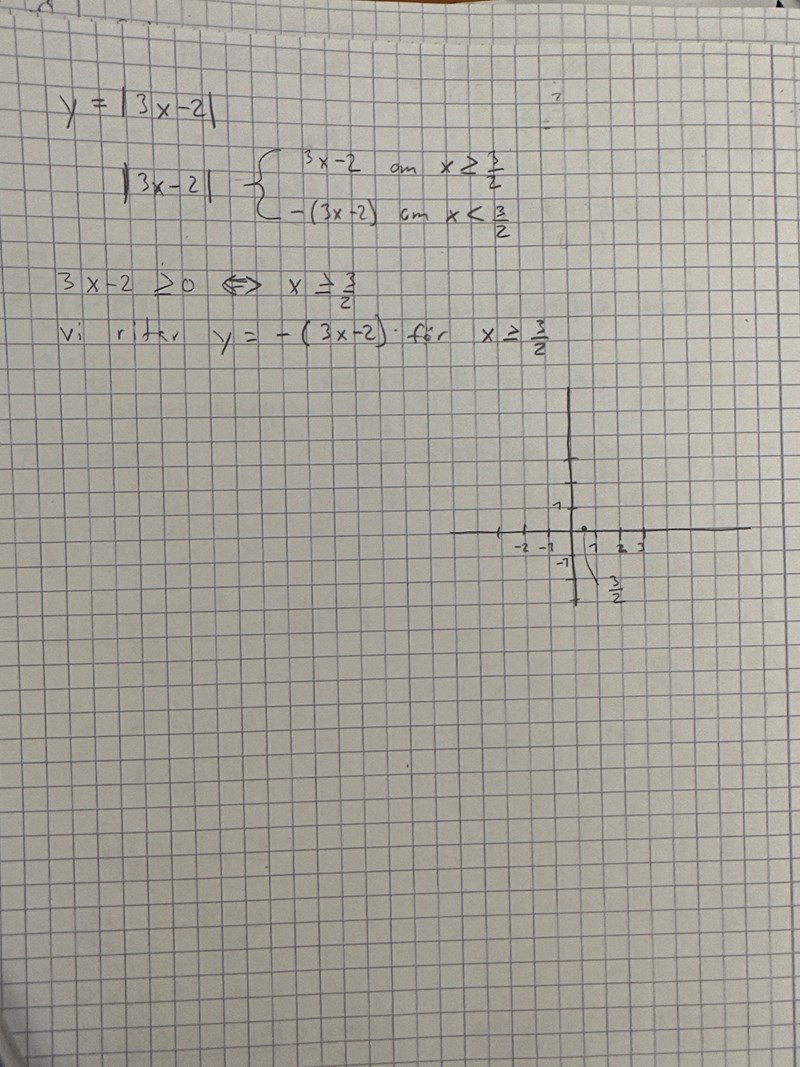 y = |3x-2|
|3x-2| { 3x-2 om x ≥ 3/2
-(3x-2) om x < 3/2
3x-2 ≥ 0 <=> x ≥ 3/2
vi ritar y = -(3x-2) för x ≥ 3/2
1
-2 -1 1 2 3
-1
3/2